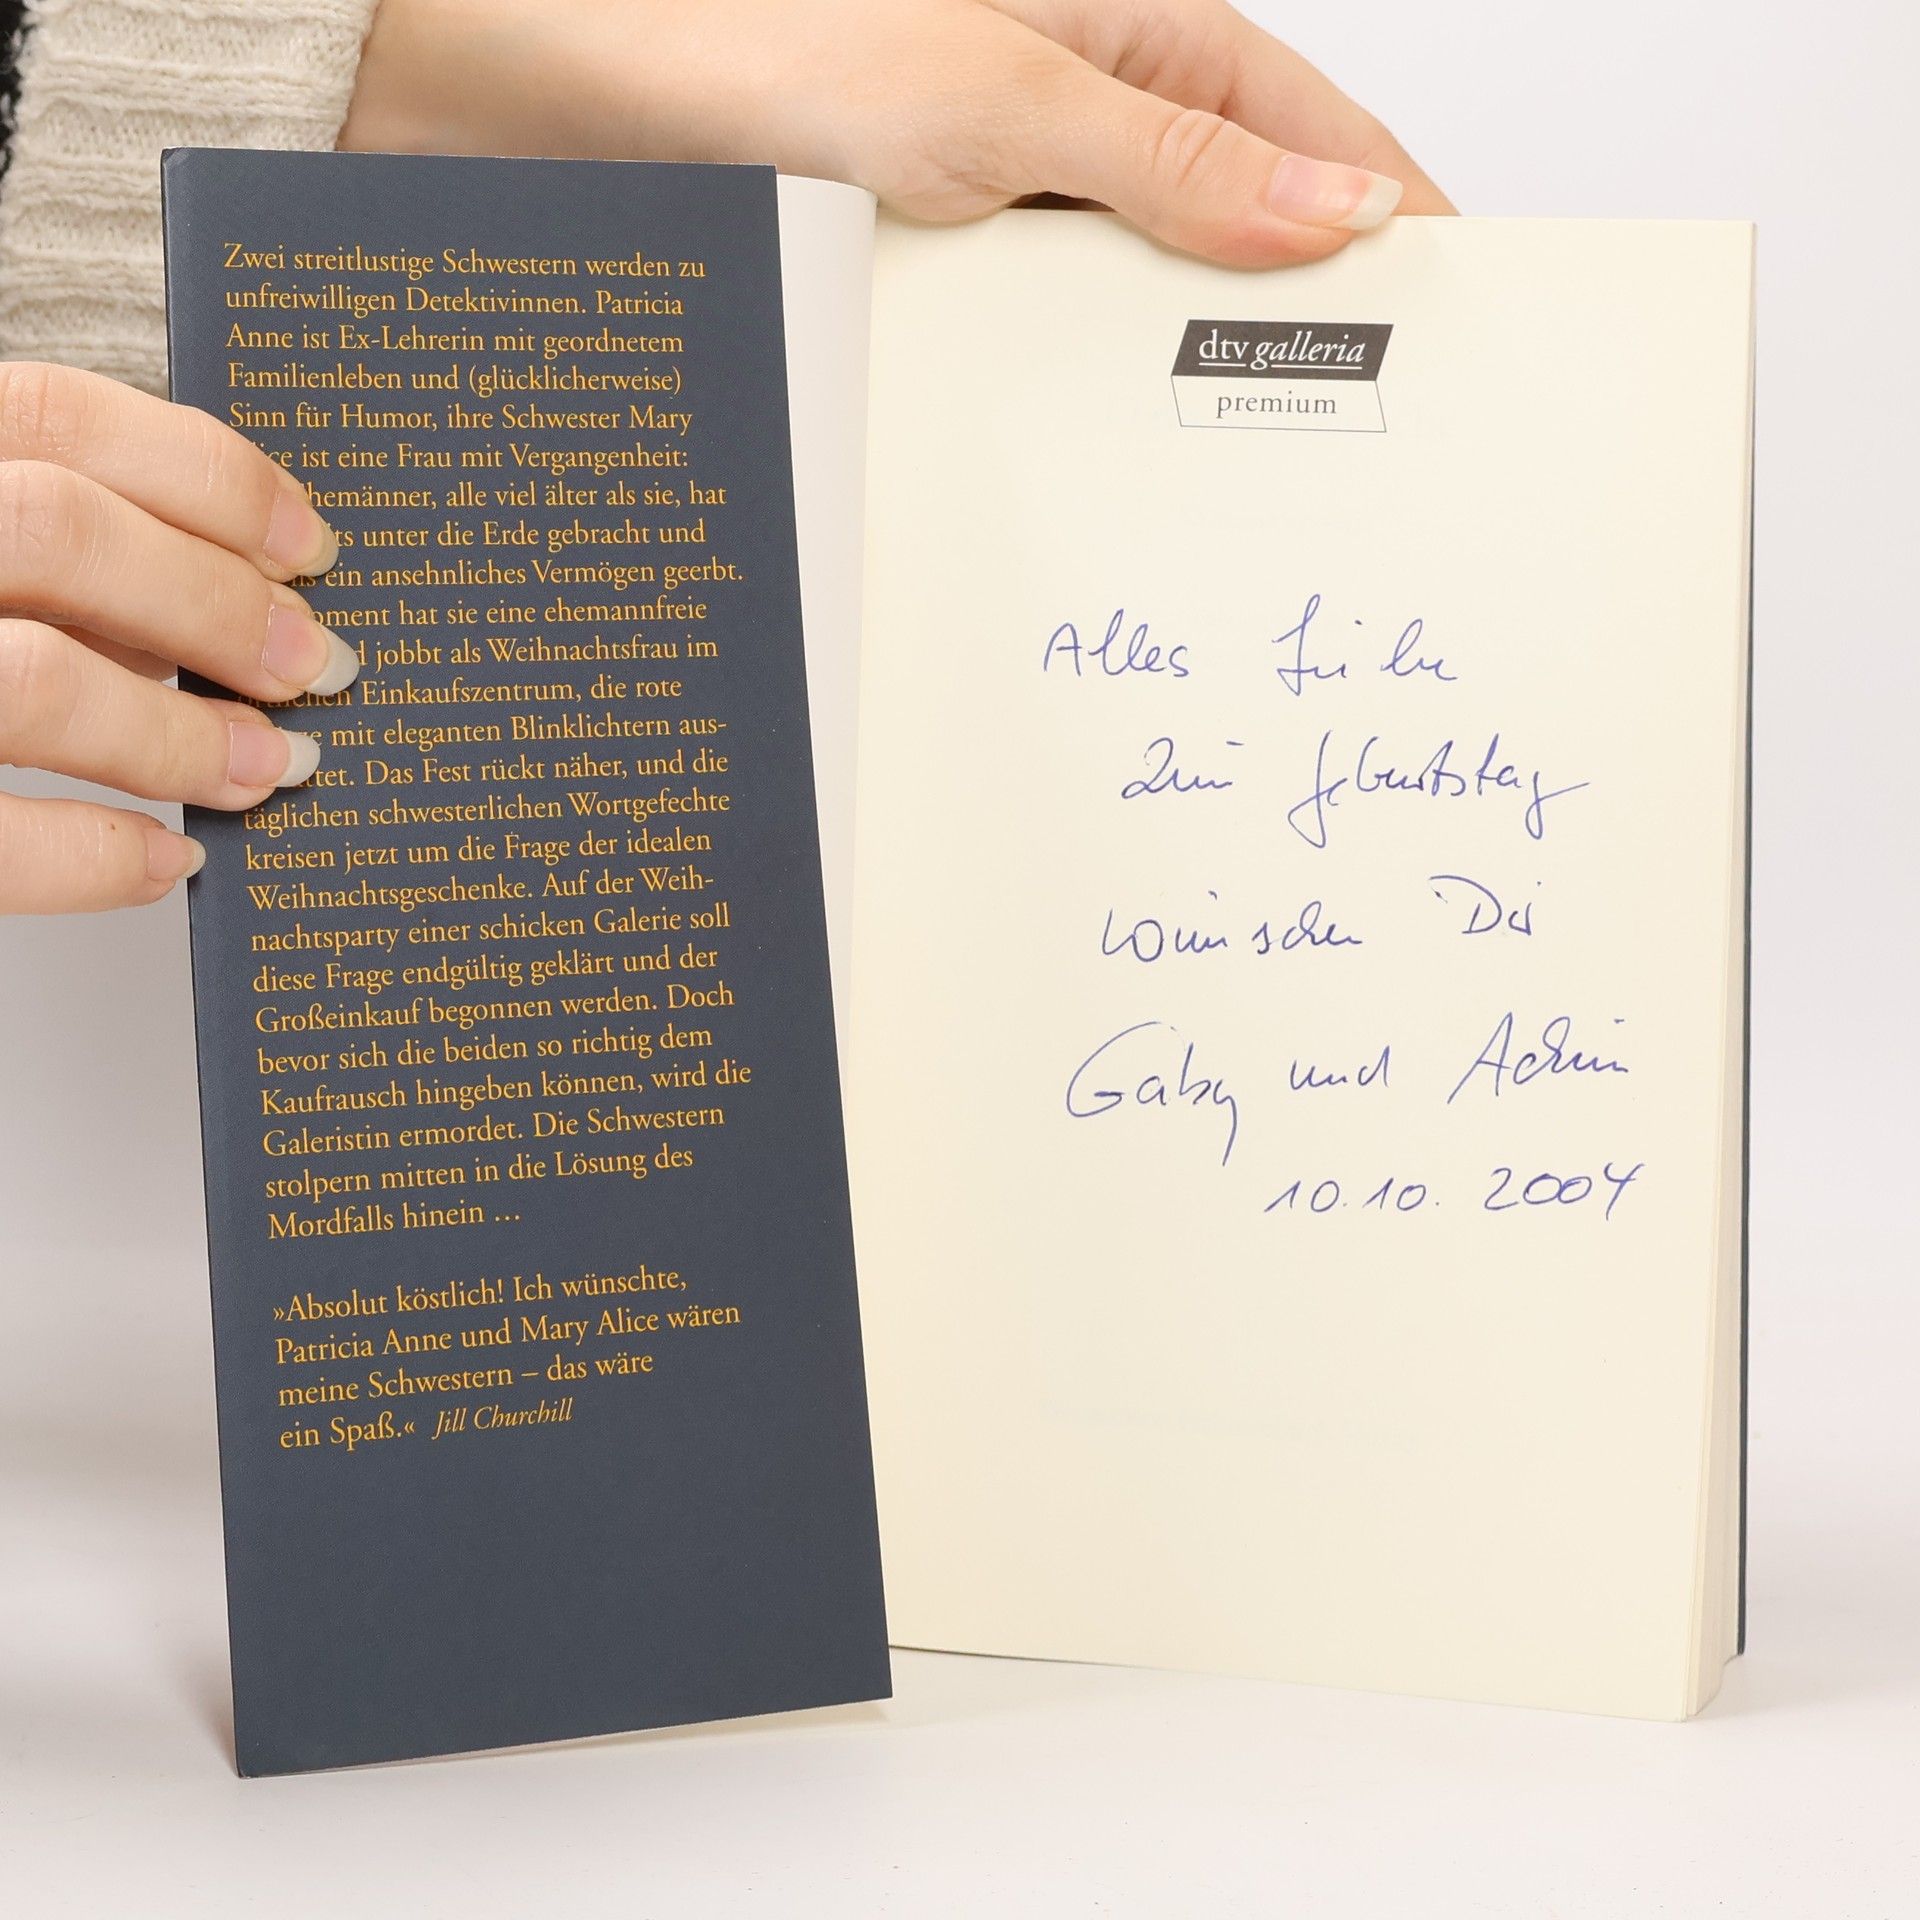 Zwei streitlustige Schwestern werden zu
unfreiwilligen Detektivinnen. Patricia
Anne ist Ex-Lehrerin mit geordnetem
Familienleben und (glücklicherweise)
Sinn für Humor, ihre Schwester Mary
ist eine Frau mit Vergangenheit:
alle viel älter als sie, hat
unter die Erde gebracht und
ein ansehnliches Vermögen geerbt.
hat sie eine ehemannfreie
jobbt als Weihnachtsfrau im
Einkaufszentrum, die rote
mit eleganten Blinklichtern aus-
Das Fest rückt näher, und die
täglichen schwesterlichen Wortgefechte
kreisen jetzt um die Frage der idealen
Weihnachtsgeschenke. Auf der Weih-
nachtsparty einer schicken Galerie soll
diese Frage endgültig geklärt und der
Großeinkauf begonnen werden. Doch
bevor sich die beiden so richtig dem
Kaufrausch hingeben können, wird die
Galeristin ermordet. Die Schwestern
stolpern mitten in die Lösung des
Mordfalls hinein ...
»Absolut köstlich! Ich wünschte,
Patricia Anne und Mary Alice wären
meine Schwestern – das wäre
ein Spaß.« Jill Churchill
dtv galleria
premium
Alles Liebe
zum Geburtstag
wünschen Dir
Gaby und Achim
10.10. 2004